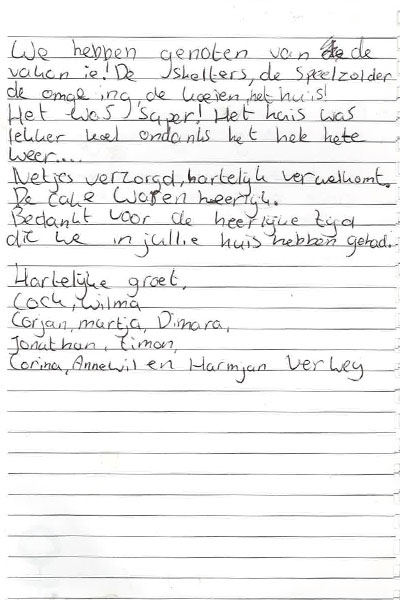 We hebben genoten van de
vakan ie! De skelters, de speelzolder
de omge ing, de koeien, het huis!
Het was super! Het huis was
lekker koel ondanks het hele hete
weer....
Netjes verzorgd, hartelijk verwelkomt.
De cake waren heerlijk.
Bedankt voor de heerlijke tijd
die we in jullie huis hebben gehad.
Hartelijke groet,
Cock, Wilma
Corjan, Martja, Dimara,
Jonathan, Timon,
Corina, Annewil en Harmjan Verwey